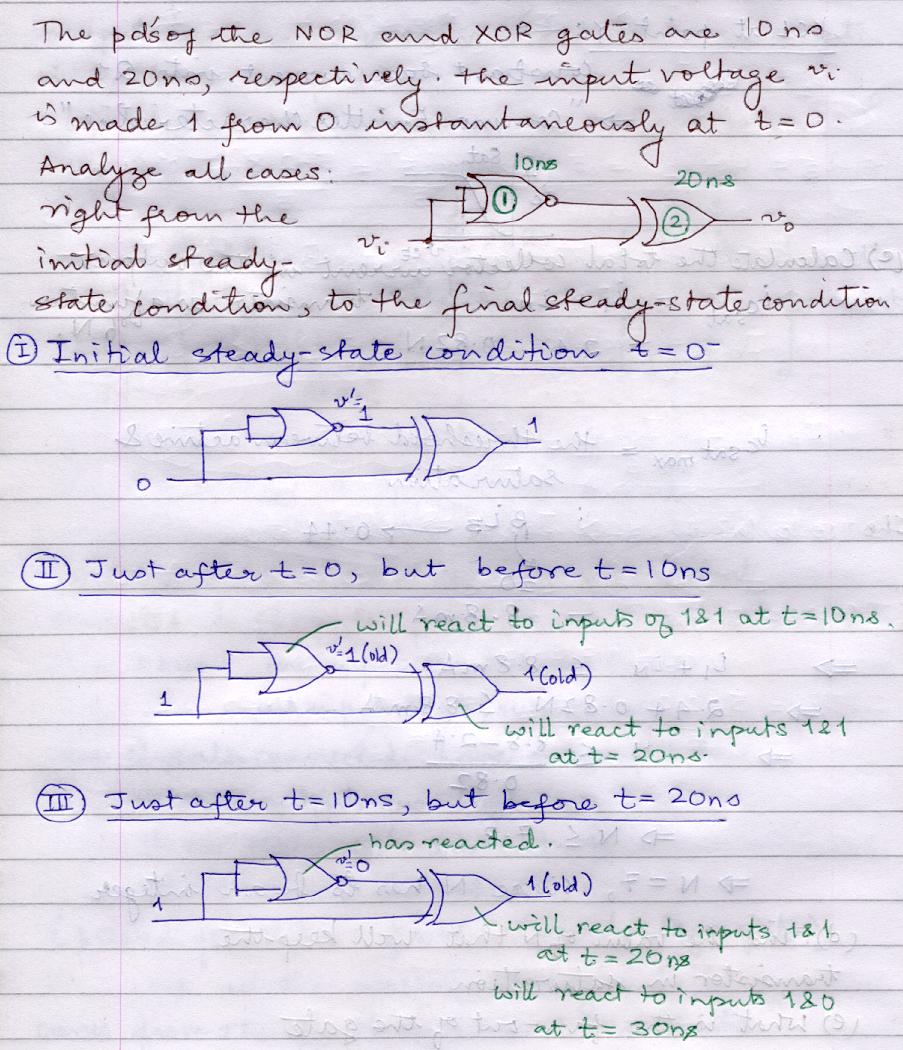 The pds of the NOR and XOR gates are 10ns
and 20ns, respectively. The input voltage vi
is made 1 from 0 instantaneously at t=0.
Analyze all cases:
right from the
initial steady-
state condition, to the final steady-state condition
10ns
20ns
1
2
vi
v0
I Initial steady-state condition t=0-
v'=
1
1
0
II Just after t=0, but before t=10ns
will react to inputs of 1&1 at t=10ns.
v'=1(old)
1(old)
1
will react to inputs 1&1
at t=20ns.
III Just after t=10ns, but before t=20ns
has reacted.
v'=0
1(old)
1
will react to inputs 1&1
at t=20ns
will react to inputs 1&0
at t=30ns